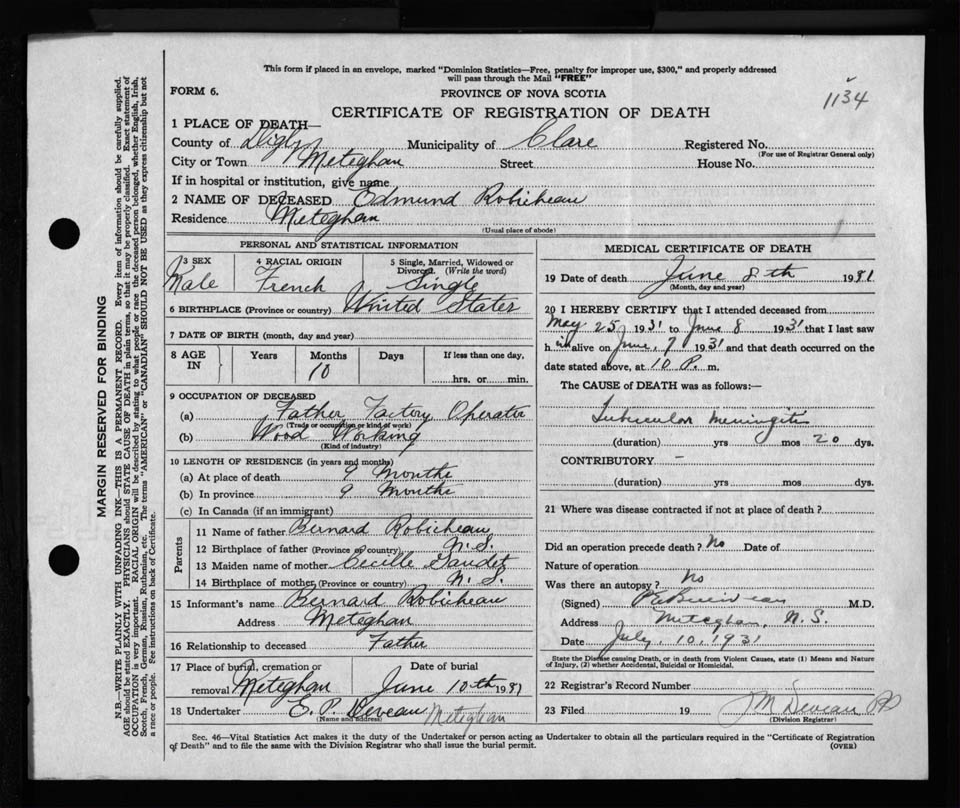 This form if placed in an envelope, marked "Dominion Statistics—Free, penalty for improper use, $300," and properly addressed
will pass through the Mail "FREE"
FORM 6.
PROVINCE OF NOVA SCOTIA
1134
CERTIFICATE OF REGISTRATION OF DEATH
1 PLACE OF DEATH—
County of Digby Municipality of Clare Registered No.
(For use of Registrar General only)
City or Town Meteghan Street House No.
If in hospital or institution, give name
2 NAME OF DECEASED Edmund Robicheau
Residence Meteghan
(Usual place of abode)
PERSONAL AND STATISTICAL INFORMATION
3 SEX 4 RACIAL ORIGIN 5 Single, Married, Widowed or
Divorced. (Write the word)
Male French Single
6 BIRTHPLACE (Province or country) United States
7 DATE OF BIRTH (month, day and year)
8 AGE IN Years Months Days If less than one day,
10
hrs. or min.
9 OCCUPATION OF DECEASED
(a) Father Factory Operator
(Trade or occupation or kind of work)
(b) Wood Working
(Kind of industry)
10 LENGTH OF RESIDENCE (in years and months)
(a) At place of death 9 Months
(b) In province 9 Months
(c) In Canada (if an immigrant)
Parents
11 Name of father Bernard Robicheau
12 Birthplace of father (Province or country) N. S.
13 Maiden name of mother Cecille
14 Birthplace of mother (Province or country) N. S.
15 Informant's name Bernard Robicheau
Address Meteghan
16 Relationship to deceased Father
17 Place of burial, cremation or Date of burial
removal Meteghan June 10th 1931
18 Undertaker E. P. Deveau Meteghan
(Name and address)
MEDICAL CERTIFICATE OF DEATH
19 Date of death June 8th 1931
(Month, day and year)
20 I HEREBY CERTIFY that I attended deceased from
May 25 1931 to June 8 1931 that I last saw
h im alive on June, 7 1931 and that death occurred on the
date stated above, at 10 P. m.
The CAUSE of DEATH was as follows:—
Tubercular Meningitis
(duration) yrs mos 20 dys.
CONTRIBUTORY –
(duration) yrs mos dys.
21 Where was disease contracted if not at place of death?
Did an operation precede death? No Date of
Nature of operation
Was there an autopsy? No
(Signed) M.D.
Address Meteghan, N. S.
Date July, 10, 1931
State the Disease causing Death, or in death from Violent Causes, state (1) Means and Nature
of Injury, (2) whether Accidental, Suicidal or Homicidal.
22 Registrar's Record Number
23 Filed 19 J M Deveau
(Division Registrar)
Sec. 46—Vital Statistics Act makes it the duty of the Undertaker or person acting as Undertaker to obtain all the particulars required in the "Certificate of Registration
of Death" and to file the same with the Division Registrar who shall issue the burial permit.
(OVER)
MARGIN RESERVED FOR BINDING
N.B.—WRITE PLAINLY WITH UNFADING INK—THIS IS A PERMANENT RECORD. Every item of information should be carefully supplied.
AGE should be stated EXACTLY. PHYSICIANS should STATE CAUSE OF DEATH in plain terms, so that it may be properly classified. Exact statement of
OCCUPATION is very important. RACIAL ORIGIN will be described by stating to what people or race the deceased person belonged, whether English, Irish,
Scotch, French, German, Russian, Ruthenian, etc. The terms "AMERICAN" or "CANADIAN" SHOULD NOT BE USED as they express citizenship but not
a race or people. See instructions on back of Certificate.